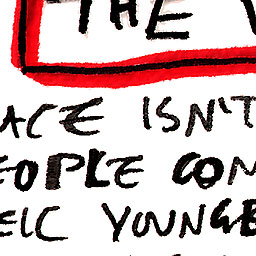 THE
ACE ISN'T
EOPLE COM
EIC YOUNGE